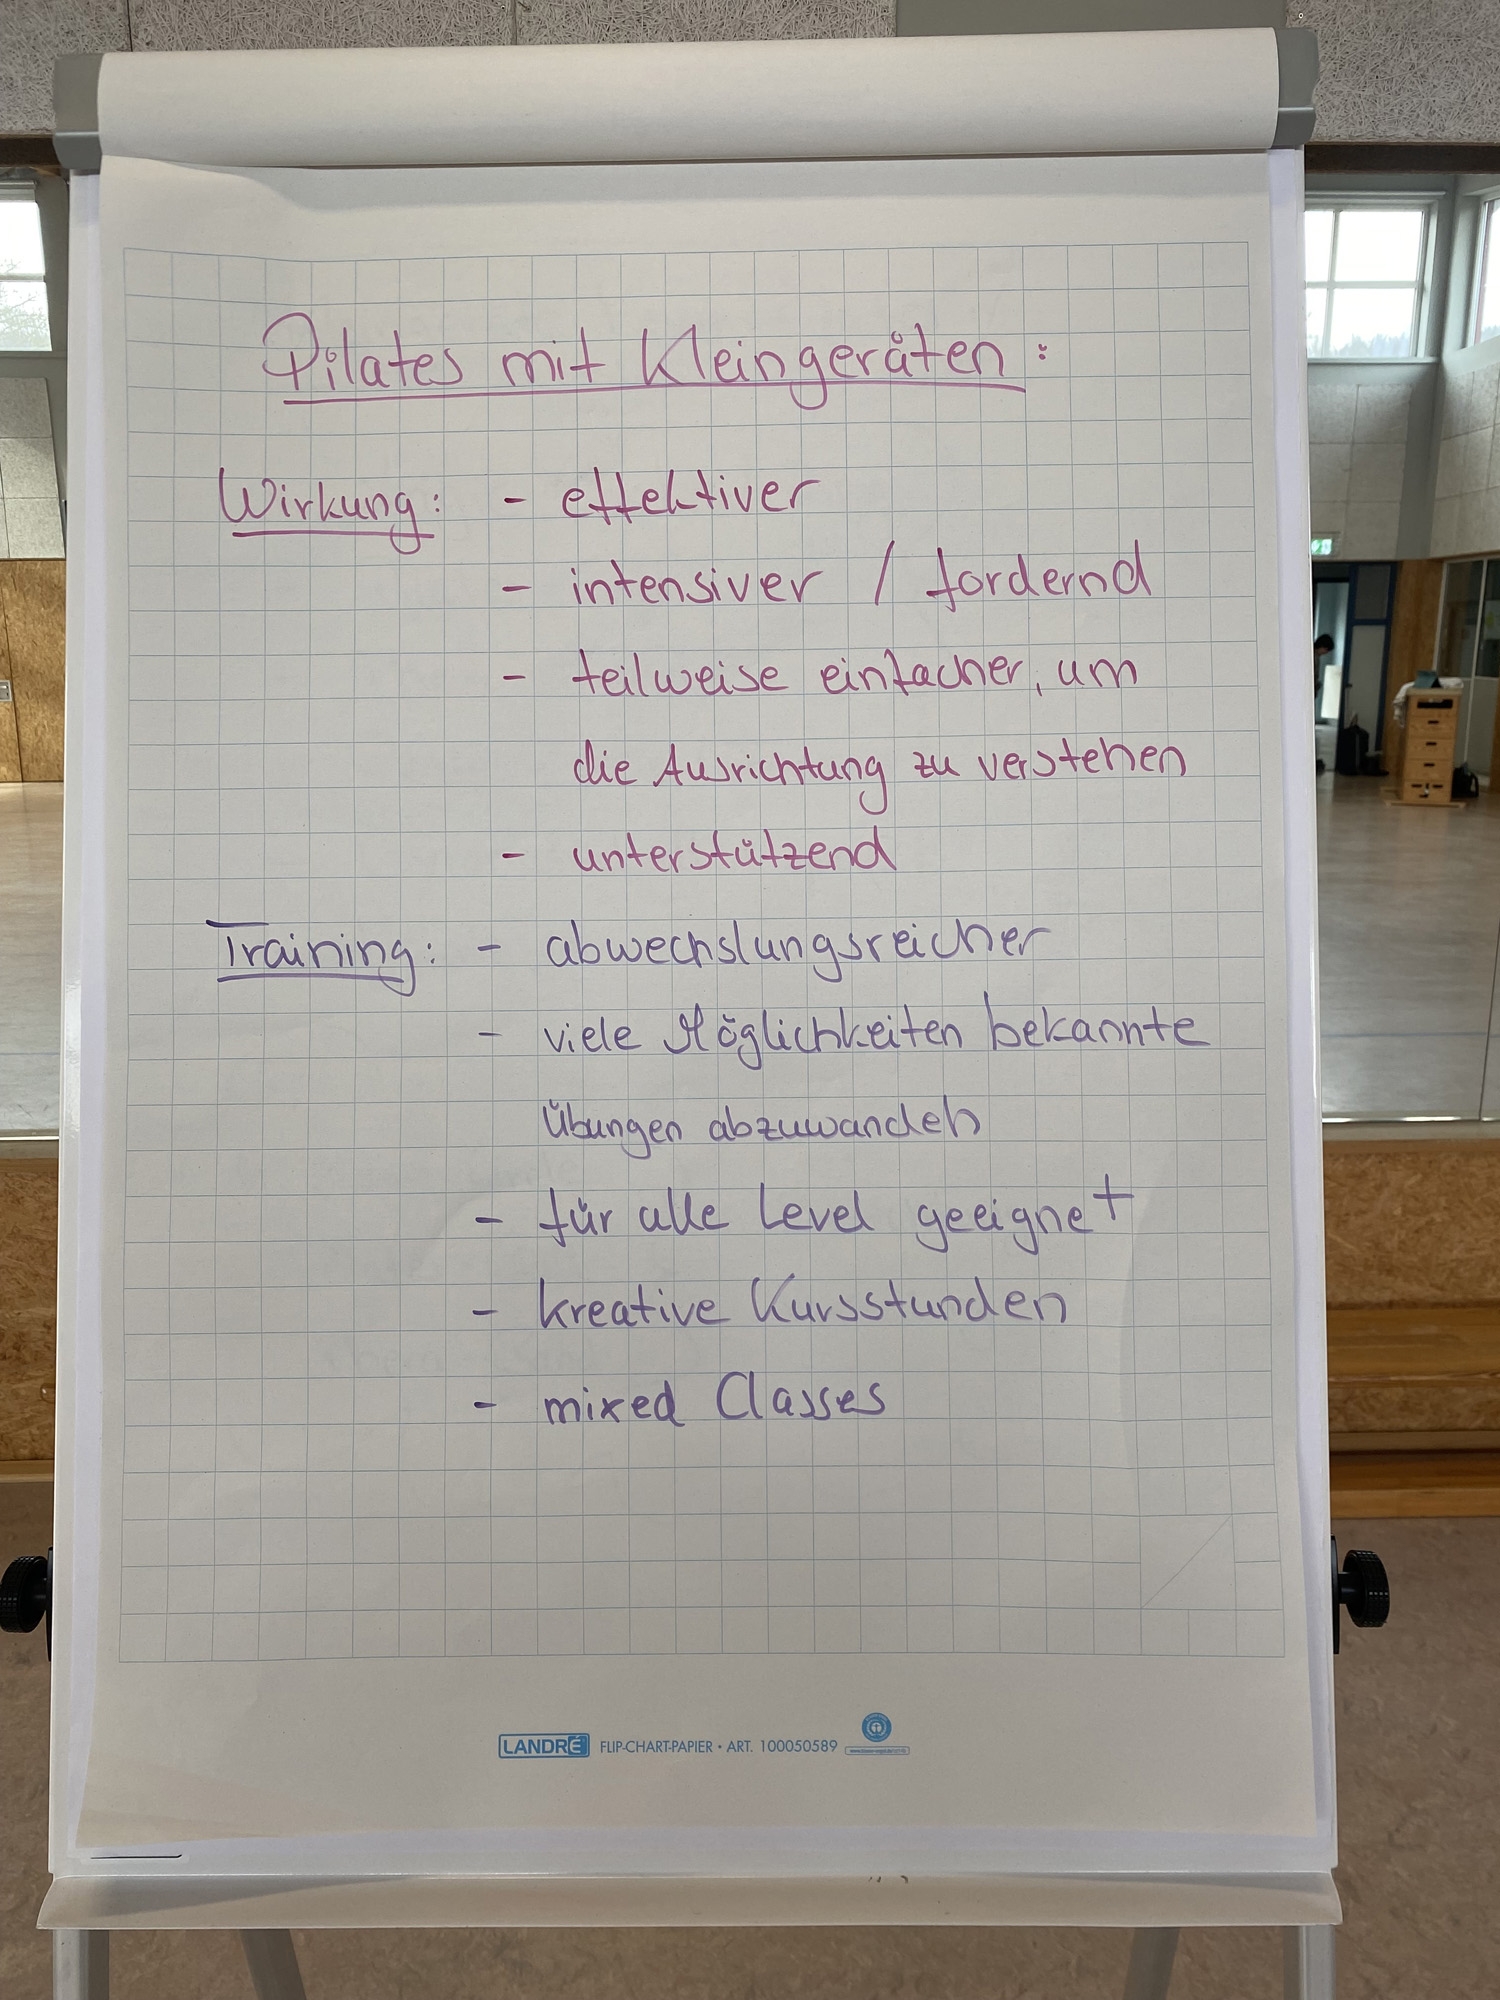 Pilates mit Kleingeräten:
Wirkung: - effektiver
- intensiver / fordernd
- teilweise einfacher, um
die Ausrichtung zu verstehen
- unterstützend
Training: - abwechslungsreicher
- viele Möglichkeiten bekannte
Übungen abzuwandeln
- für alle Level geeignet
- kreative Kursstunden
- mixed Classes
LANDRÉ FLIP-CHART-PAPIER • ART. 100050589